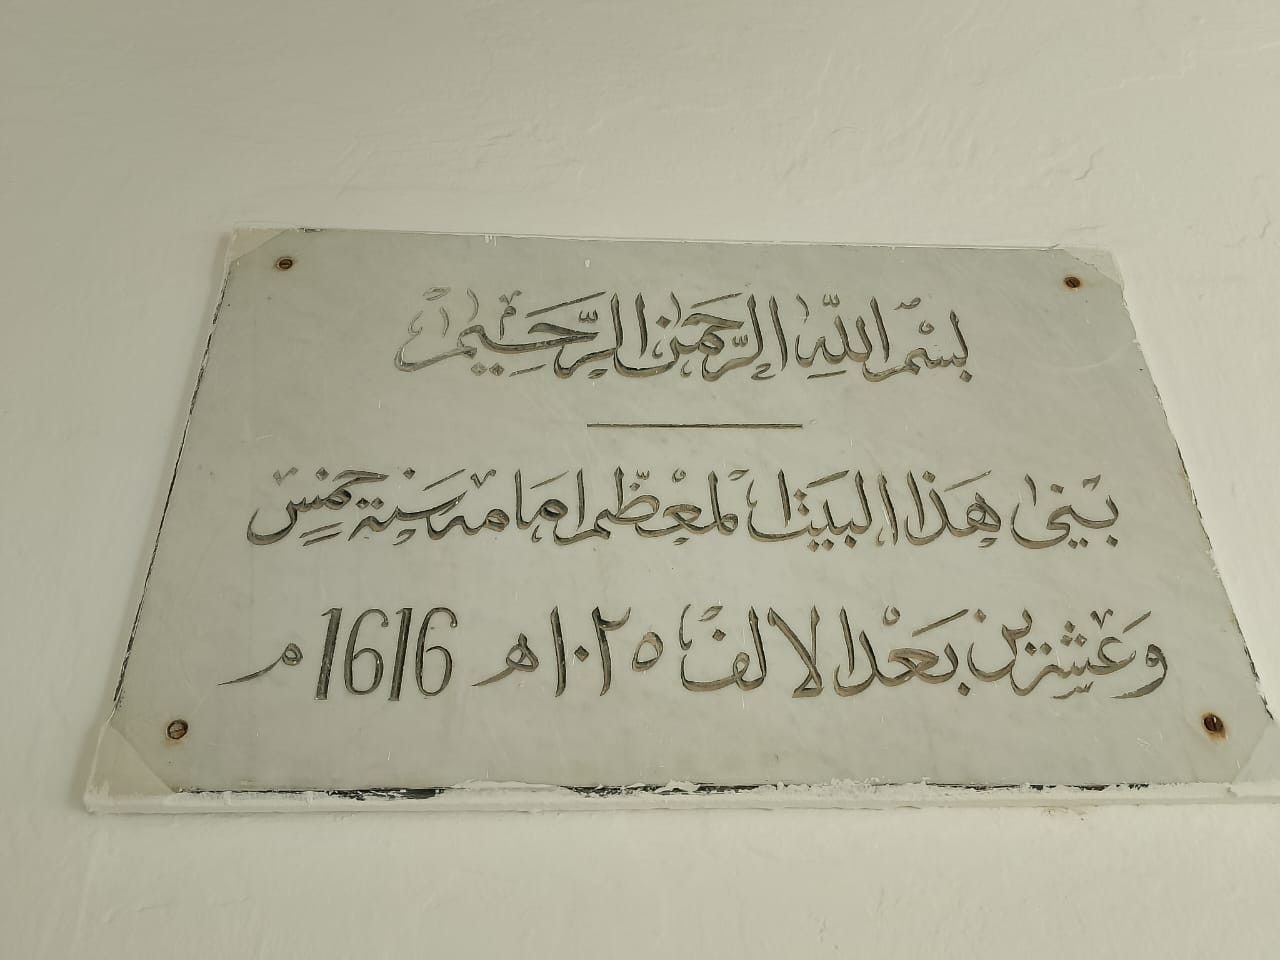 بِسْمِ اللّٰهِ الرَّحْمَنِ الرَّحِيمِ
بُنِيَ هَذَا البَيْتُ المُعَظَّم امَامه سَنة خمسٍ
وَعشرين بَعْد الالف ١٠٢٥ هـ 1616 م